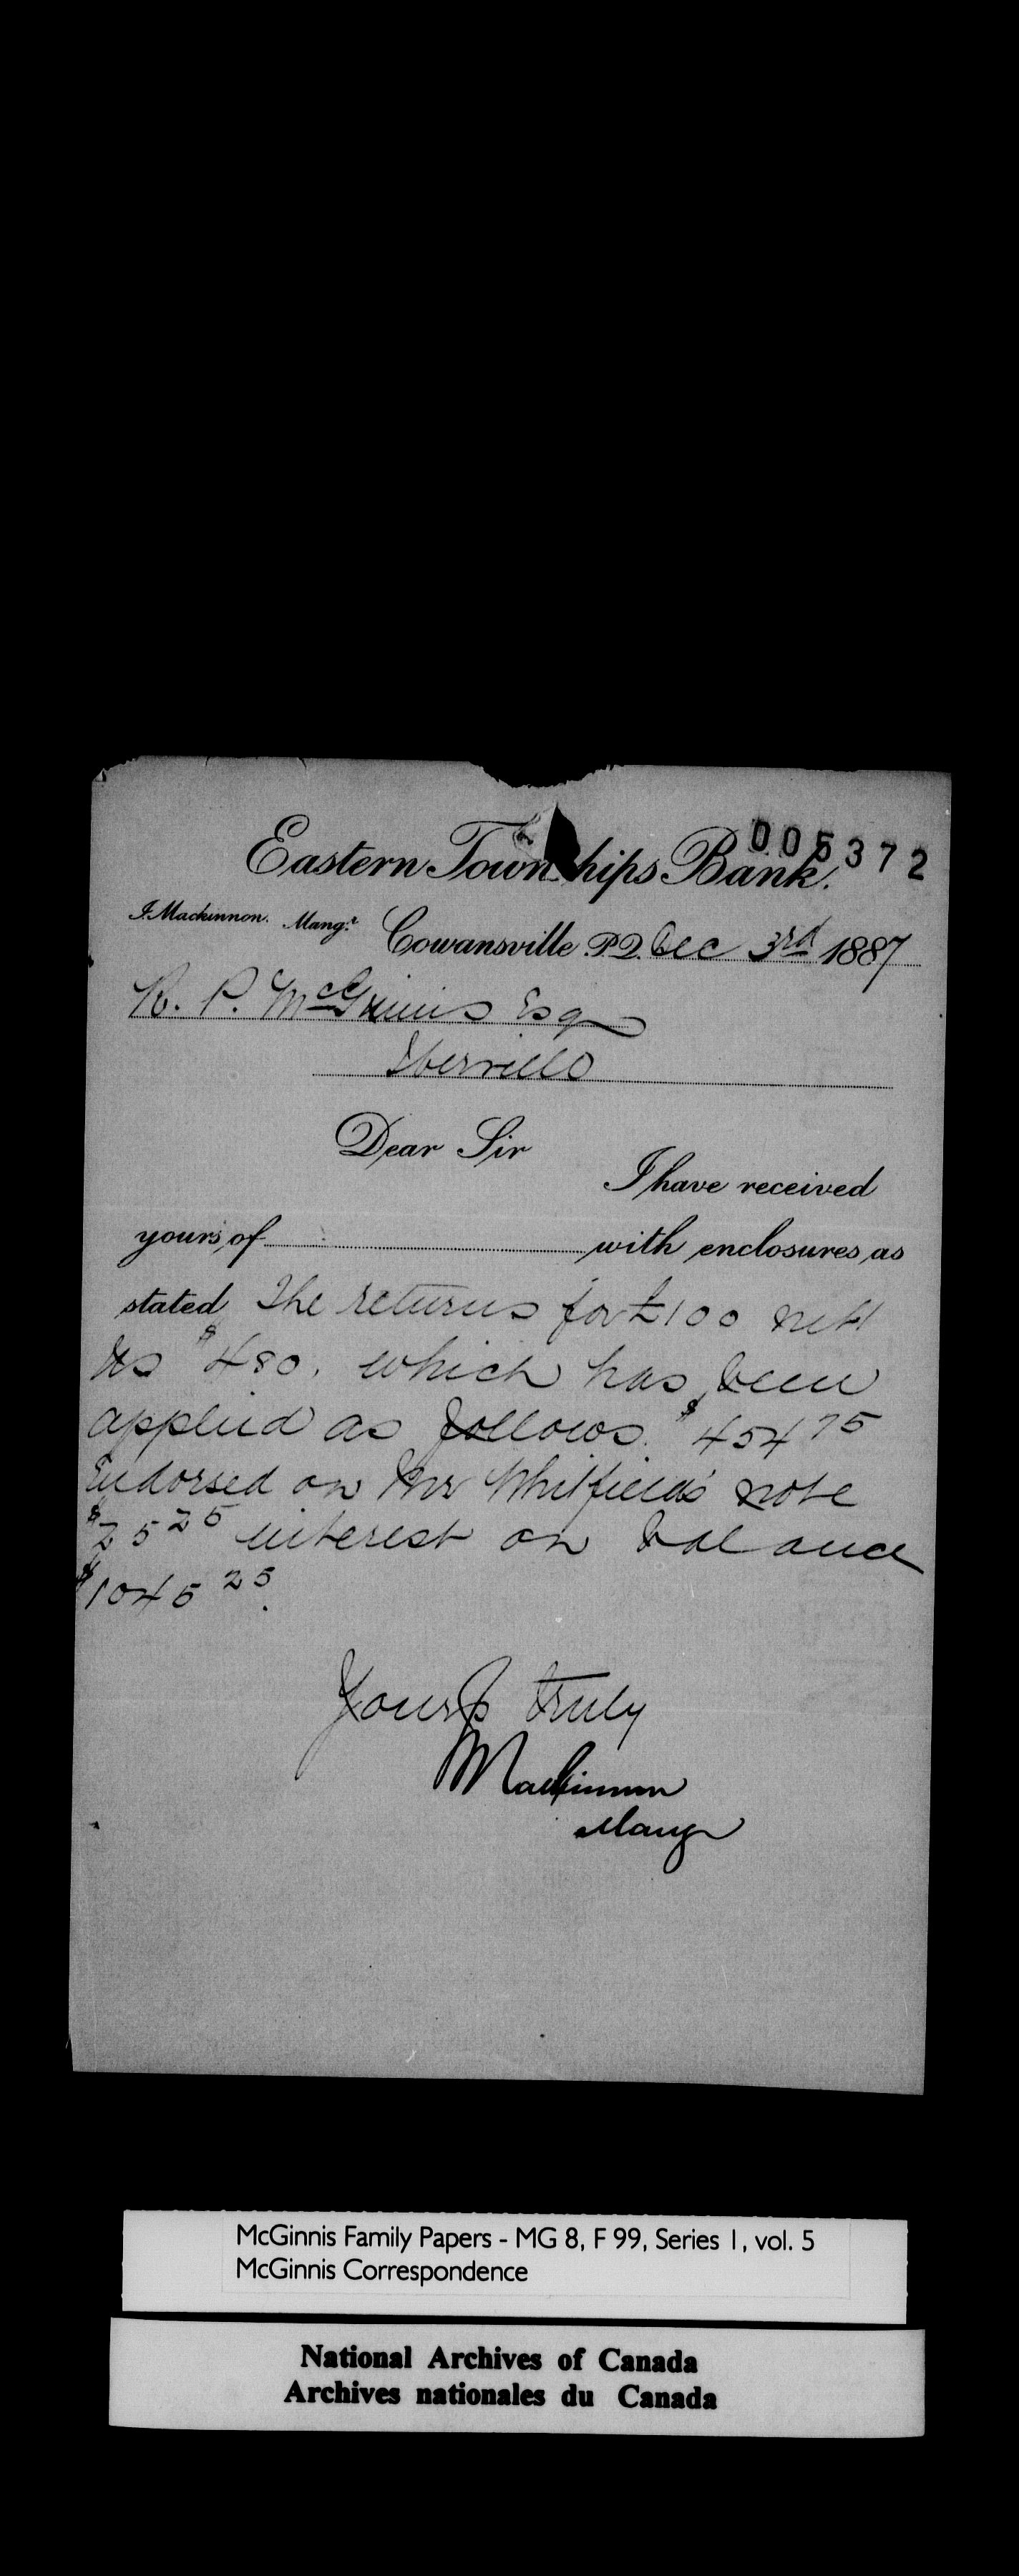 005372
Eastern Townships Bank.
J. Mackinnon. Mang.r Cowansville P.Q. Dec 3rd 1887
R. P. McGinnis Esq
Iberville
Dear Sir
I have received
yours of with enclosures as
stated The returns for £100 nett
us $480. which has been
applied as follows. $454 75
Endorsed on Mr Whitfield's note
$25 25 interest on balance
$1045 25.
Yours truly
Mackinnon
Mangr
McGinnis Family Papers - MG 8, F 99, Series 1, vol. 5
McGinnis Correspondence
National Archives of Canada
Archives nationales du Canada